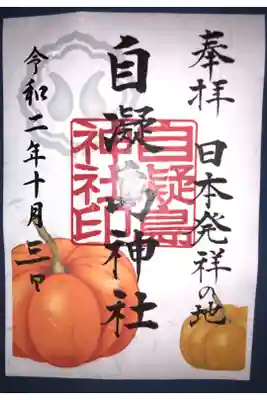 奉拝
日本発祥の地
自凝島神社
自凝島
神社印
令和二年十月三日